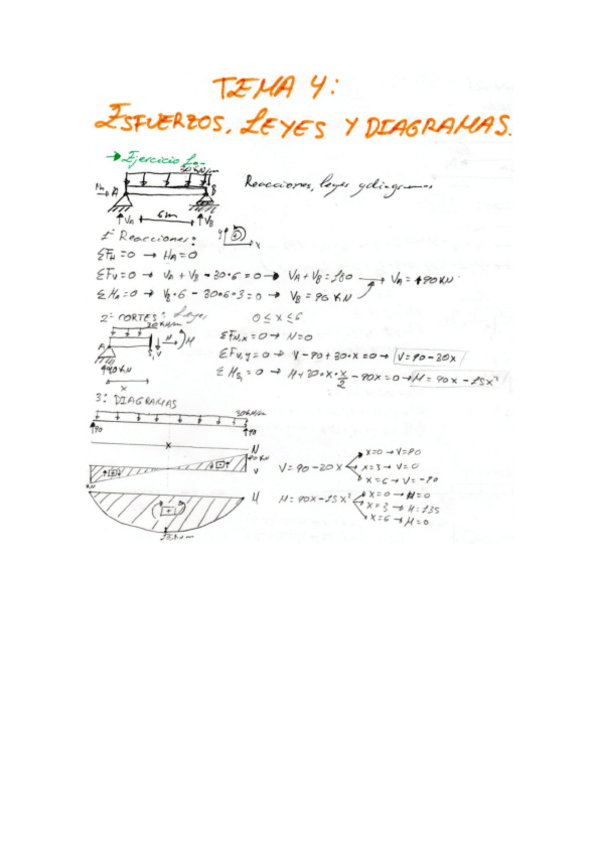 TEMA 4:
ESFUERZOS, LEYES Y DIAGRAMAS.
→ Ejercicio 1.-
30 kN/m
Reacciones, leyes y diagramas
HA → A B
↑VA 6m ↑VB
1º Reacciones: y x
ΣFH=0 → HA=0
ΣFV=0 → VA + VB - 30·6 = 0 → VA + VB = 180 → VA = +90 KN
ΣMA=0 → VB·6 - 30·6·3 = 0 → VB = 90 KN
2º CORTES: Leyes 0 ≤ x ≤ 6
30 kN/m
A N M
S, V
90 KN
x
ΣFH,x=0 → N=0
ΣFV,y=0 → V-90+30·x=0 → V=90-30x
ΣMS1=0 → M+30·x·x/2-90x=0 → M=90x-15x²
3º DIAGRAMAS
30 kN/m
↑90 ↑90
x N
V
V=90-30x
x=0 → V=90
x=3 → V=0
x=6 → V=-90
M
M=90x-15x²
x=0 → M=0
x=3 → M=135
x=6 → M=0